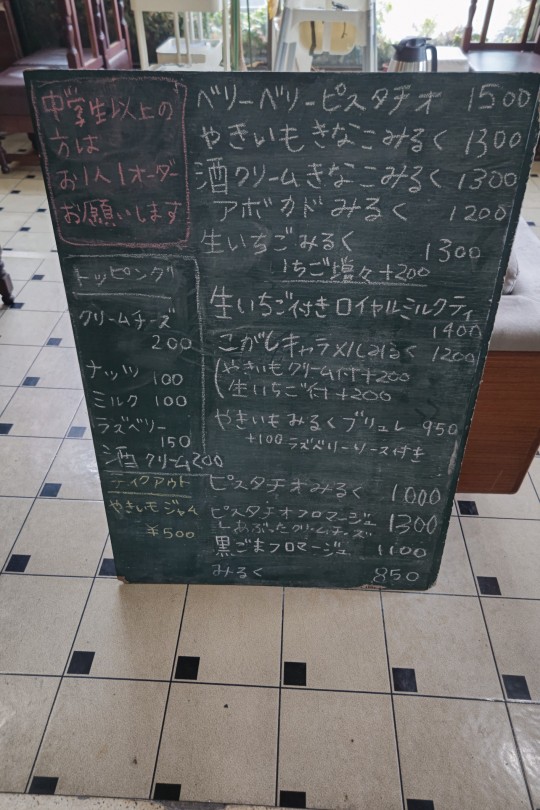 中学生以上の
方は
お1人1オーダー
お願いします
トッピング
クリームチーズ
200
ナッツ 100
ミルク 100
ラズベリー
150
酒クリーム200
テイクアウト
やきいもジャム
¥500
ベリーベリーピスタチオ 1500
やきいもきなこみるく 1300
酒クリームきなこみるく 1300
アボカドみるく 1200
生いちごみるく
1300
いちご増々+200
生いちご付きロイヤルミルクティ
1400
こがしキャラメルみるく 1200
(やきいもクリーム付+200
生いちご付+200
やきいもみるくブリュレ 950
+100 ラズベリーソース付き
ピスタチオみるく 1000
ピスタチオフロマージュ 1300
あぶったクリームチーズ
黒ごまフロマージュ 1100
みるく 850